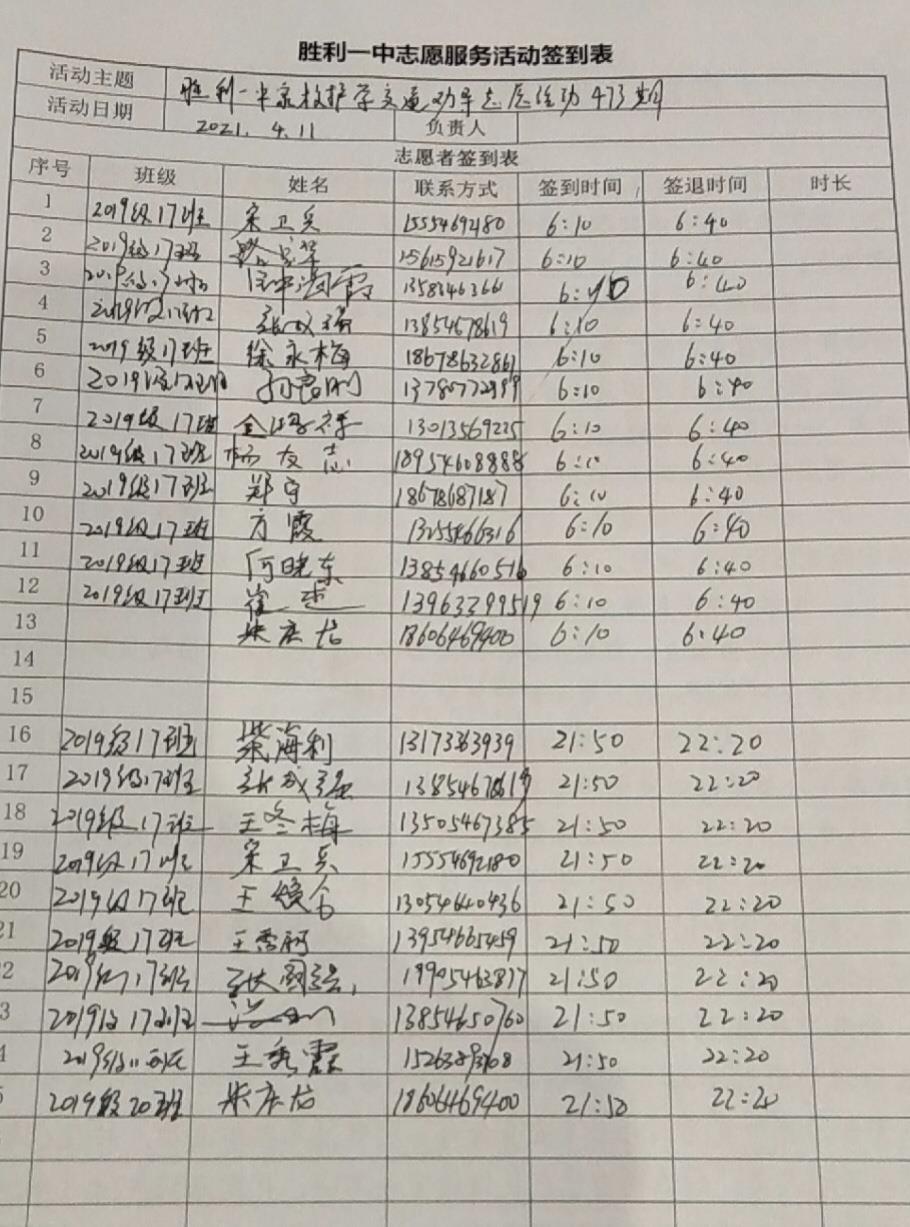 胜利一中志愿服务活动签到表
活动主题 胜利一中家校护学交通劝导志愿活动473期
活动日期 2021.4.11 负责人
志愿者签到表
序号 班级 姓名 联系方式 签到时间 签退时间 时长
1 2019级17班 宋卫兵 15554692180 6:10 6:40
2 2019级17班 15615921617 6:10 6:40
3 6:40
4 2019级17班 张成强 13854678619 6:10 6:40
5 2019级17班 徐永梅 18678632861 6:10 6:40
6 2019级17班 6:10 6:40
7 2019级17班 13013569225 6:10 6:40
8 2019级17班 杨友志 18954608888 6:10 6:40
9 2019级17班 郑宇 18678687187 6:10 6:40
10 2019级17班 方霞 13255466316 6:10 6:40
11 2019级17班 何晓东 13854660516 6:10 6:40
12 2019级17班 崔 13963299519 6:10 6:40
13 18606469400 6:10 6:40
14
15
16 2019级17班 柴海利 13173363939 21:50 22:20
17 2019级17班 张成强 13854678619 21:50 22:20
18 2019级17班 王冬梅 13505467385 21:50 22:20
19 2019级17班 宋卫兵 15554692180 21:50 22:20
20 2019级17班 王 13054640436 21:50 22:20
21 2019级17班 王 13954665459 21:50 22:20
2 2019级17班 张国强 19905463817 21:50 22:20
3 2019级17班 13854650760 21:50 22:20
4 王秀霞 21:50 22:20
5 2019级20班 18606469400 21:50 22:20